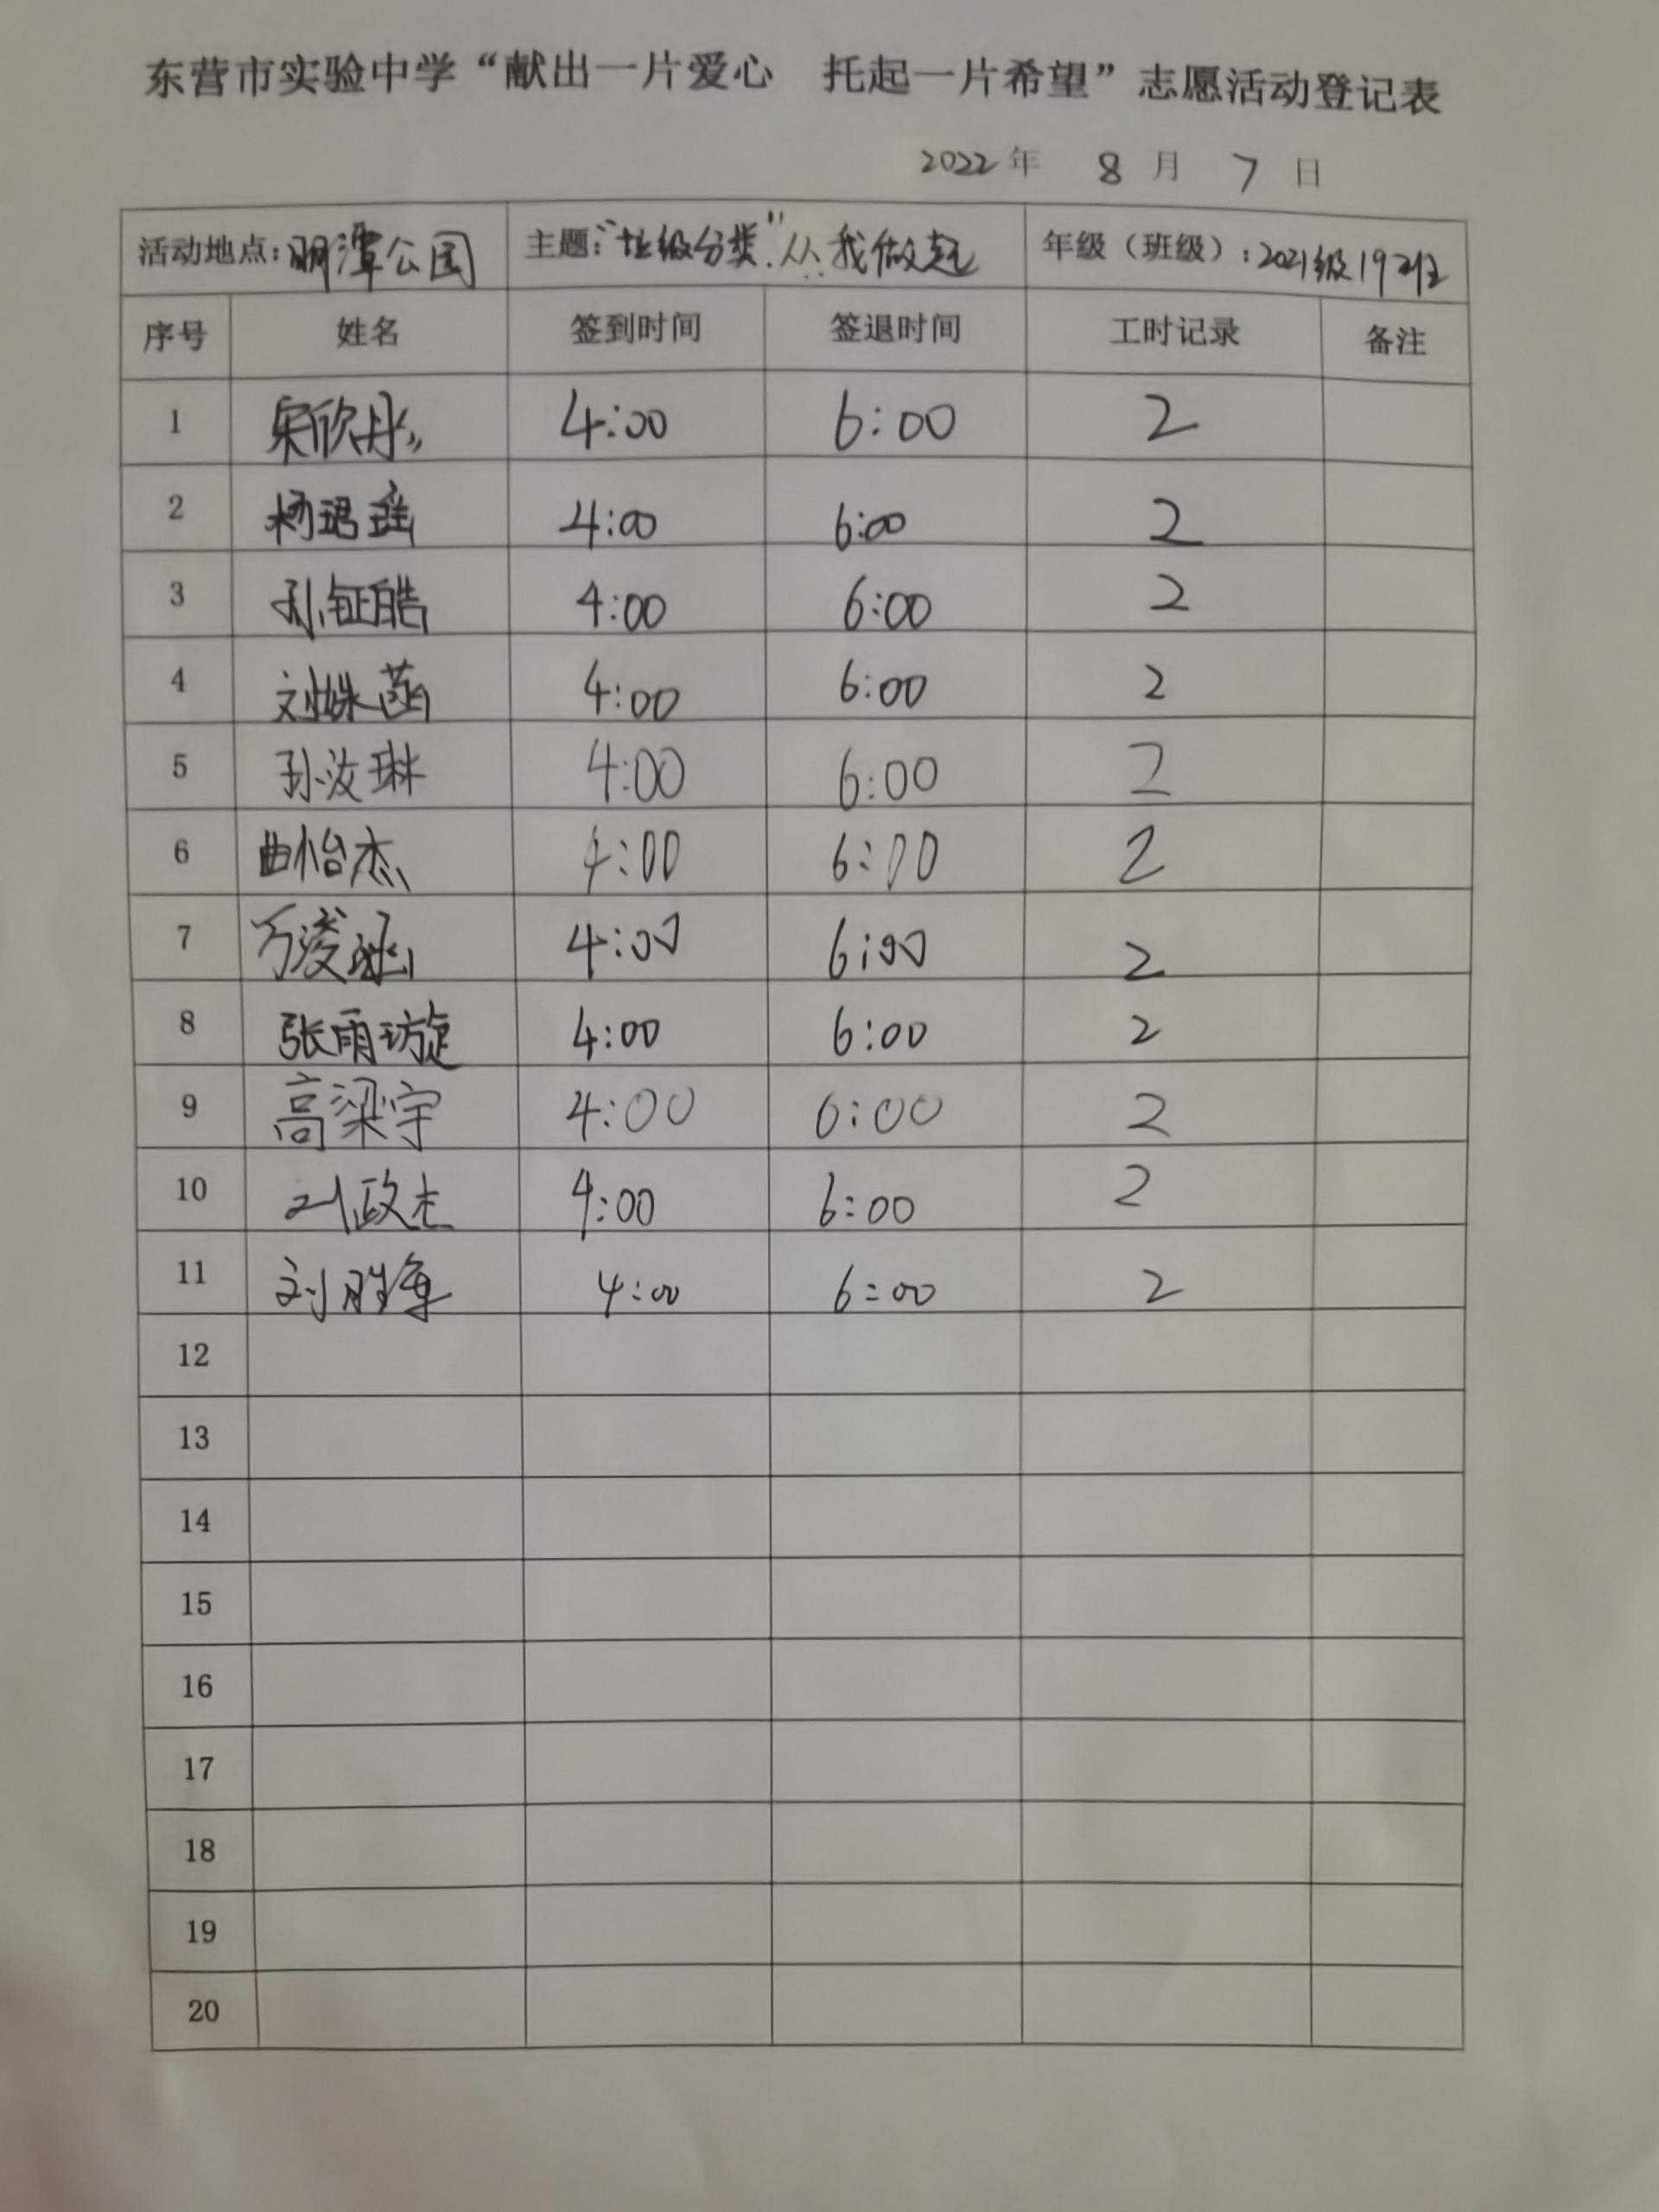 东营市实验中学“献出一片爱心 托起一片希望”志愿活动登记表
2022年 8 月 7 日
活动地点:明潭公园 主题:“垃圾分类”从我做起 年级（班级）:2021级19班
序号 姓名 签到时间 签退时间 工时记录 备注
1 宋欣彤 4:00 6:00 2
2 杨珺瑶 4:00 6:00 2
3 孙钲皓 4:00 6:00 2
4 刘姝菡 4:00 6:00 2
5 孙汝琳 4:00 6:00 2
6 曲怡杰 4:00 6:00 2
7 万凌 4:00 6:00 2
8 张雨璇 4:00 6:00 2
9 高梁宇 4:00 6:00 2
10 刘政杰 4:00 6:00 2
11 刘胜 4:00 6:00 2
12
13
14
15
16
17
18
19
20